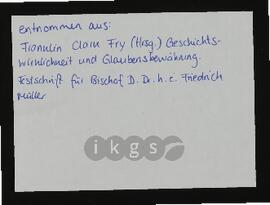 entnommen aus:
Franklin Clark Fry (Hrsg.) Geschichts-
wirklichkeit und Glaubensbewährung.
Festschrift für Bischof D. Dr. h. c. Friedrich
Müller
ikgs